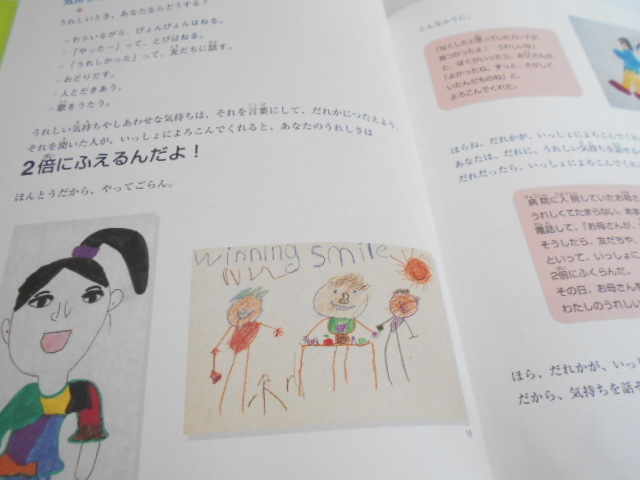 うれしいとき、あなたならどうする？
・わらいながら、ぴょんぴょんはねる。
・「やったー」って、とびはねる。
・「うれしかった」って、友だちに話す。
・おどりだす。
・人とだきあう。
・歌をうたう。
うれしい気持ちやしあわせな気持ちは、それを言葉にして、だれかにつたえよう。
それを聞いた人が、いっしょによろこんでくれると、あなたのうれしさは
2倍にふえるんだよ！
ほんとうだから、やってごらん。
winning smile
16
こんなふうに。
「なくしたと思っていたカードが、
見つかったよ！ うれしいな」
と、ぼくがいったら、お父さんが、
「よかったね。ずっと、さがして
いたんだものね」と、
よろこんでくれた。
ほらね、だれかが、いっしょによろこんでくれ
あなたは、だれに、うれしい気持ちを話せる
だれだったら、いっしょによろこんでくれ
病院に入院していたお母さ
うれしくてたまらない。おお
電話して、「お母さんが、
そうしたら、友だちや、
といって、いっしょに
2倍にふくらんだ。
その日、お母さんを
わたしのうれしい
ほら、だれかが、いっ
だから、気持ちを話そ